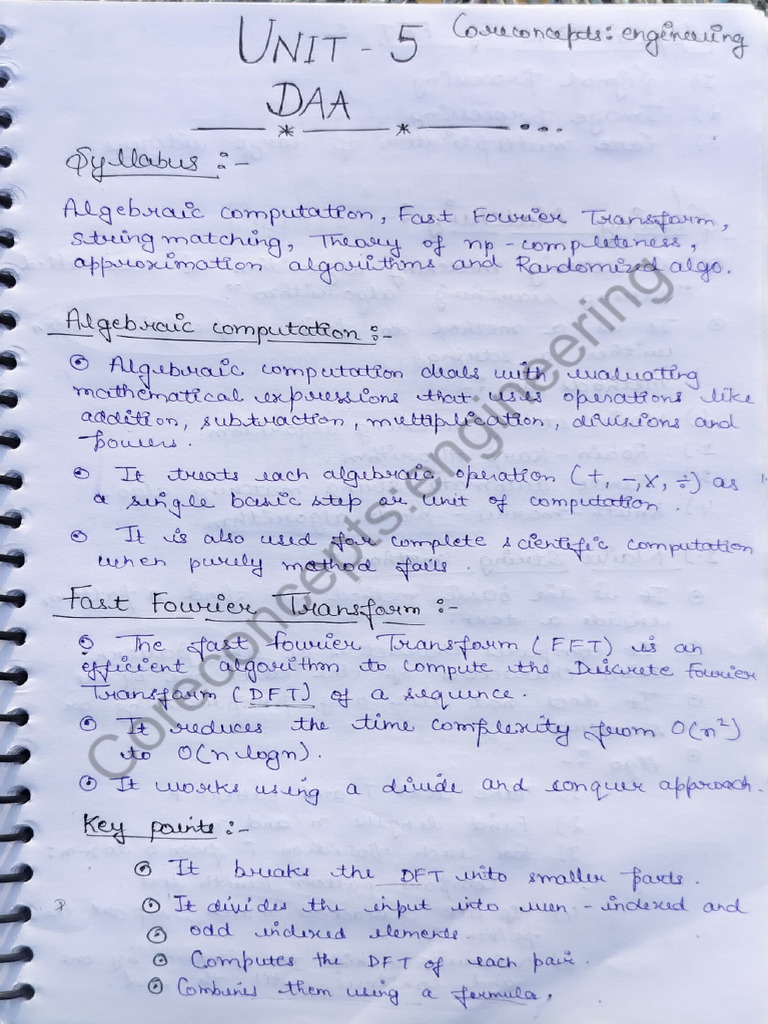 UNIT - 5
Coreconcepts: enginering
DAA
Syllabus :-
Algebraic computation, Fast Fourier Transform,
string matching, Theory of np-completeness,
approximation algorithms and Randomized algo.
Algebraic computation :-
Algebraic computation deals with evaluating
mathematical expressions that uses operations like
addition, subtraction, multiplication, divisions and
powers.
It treats each algebraic operation (+, -, x, ÷) as
a single basic step or unit of computation.
It is also used for complete scientific computation
when purely method fails.
Fast Fourier Transform :-
The fast fourier Transform (FFT) is an
efficient algorithm to compute the Discrete Fourier
Transform (DFT) of a sequence.
It reduces the time complexity from O(n²)
to O(n logn).
It works using a divide and conquer approach.
Key points :-
It breaks the DFT into smaller parts.
It divides the input into even - indexed and
odd indexed elements.
Computes the DFT of each pair.
Combines them using a formula,
Coreconcepts.engineering